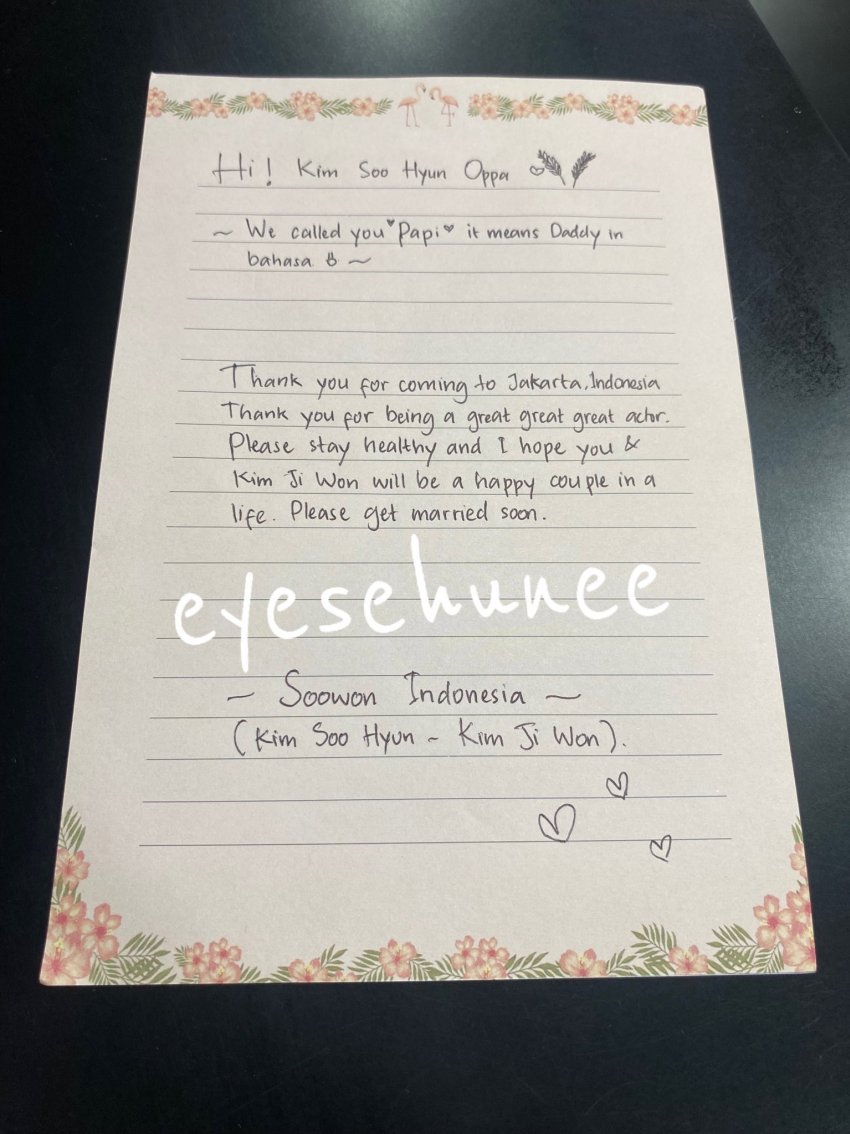 Hi! Kim Soo Hyun Oppa
~ We called you ♥Papi♥ it means Daddy in
bahasa ~
Thank you for coming to Jakarta, Indonesia
Thank you for being a great great great actor.
Please stay healthy and I hope you &
Kim Ji Won will be a happy couple in a
life. Please get married soon.
eyesehunee
~ Soowon Indonesia ~
(Kim Soo Hyun ~ Kim Ji Won).